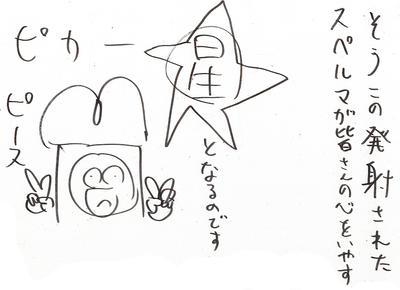 そうこの発射された
スペルマが皆さんの心をいやす
星
となるのです
ピカー
ピース